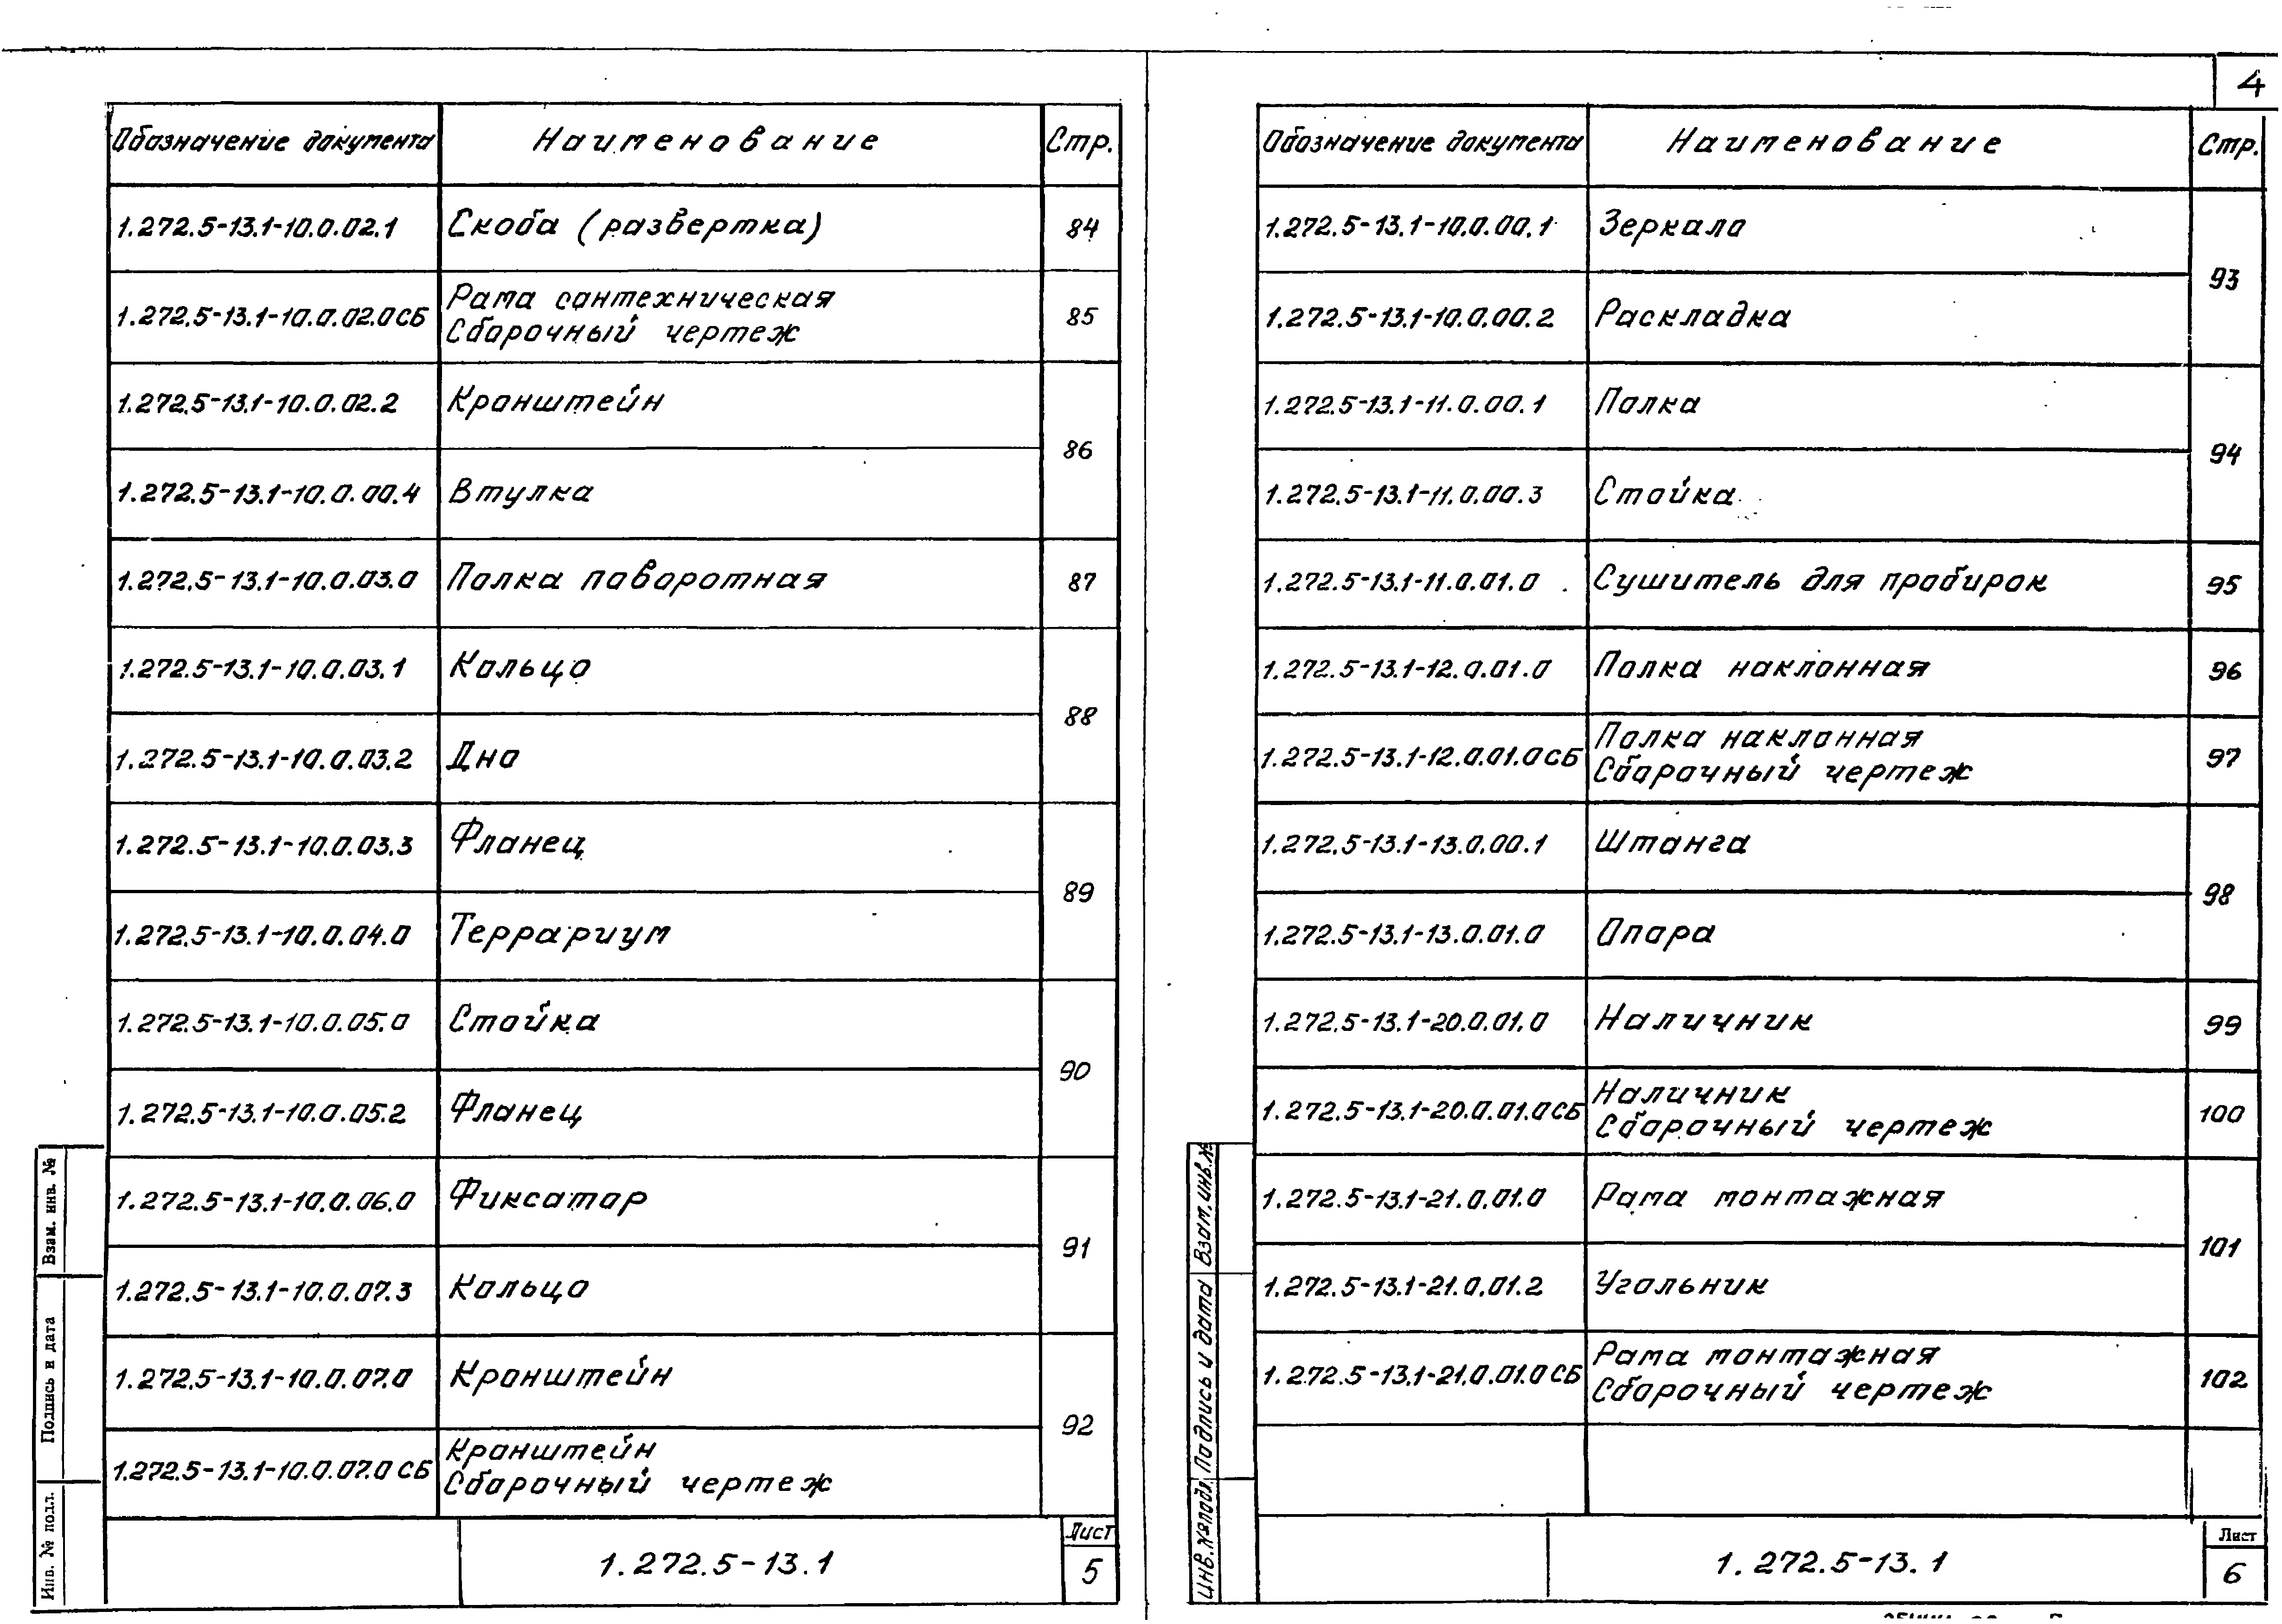 4
Обозначение документа Наименование Стр.
1.272.5-13.1-10.0.02.1 Скоба (развертка) 84
1.272.5-13.1-10.0.02.0СБ Рама сантехническая
Сборочный чертеж 85
1.272.5-13.1-10.0.02.2 Кронштейн
86
1.272.5-13.1-10.0.00.4 Втулка
1.272.5-13.1-10.0.03.0 Полка поворотная 87
1.272.5-13.1-10.0.03.1 Кольцо
88
1.272.5-13.1-10.0.03.2 Дно
1.272.5-13.1-10.0.03.3 Фланец
89
1.272.5-13.1-10.0.04.0 Террариум
1.272.5-13.1-10.0.05.0 Стойка
90
1.272.5-13.1-10.0.05.2 Фланец
1.272.5-13.1-10.0.06.0 Фиксатор
91
1.272.5-13.1-10.0.07.3 Кольцо
1.272.5-13.1-10.0.07.0 Кронштейн
92
1.272.5-13.1-10.0.07.0СБ Кронштейн
Сборочный чертеж
1.272.5-13.1
Лист
5
Взам. инв. №
Подпись и дата
Инв. № подл.
Обозначение документа Наименование Стр.
1.272.5-13.1-10.0.00.1 Зеркало
93
1.272.5-13.1-10.0.00.2 Раскладка
1.272.5-13.1-11.0.00.1 Полка
94
1.272.5-13.1-11.0.00.3 Стойка
1.272.5-13.1-11.0.01.0 Сушитель для пробирок 95
1.272.5-13.1-12.0.01.0 Полка наклонная 96
1.272.5-13.1-12.0.01.0СБ Полка наклонная
Сборочный чертеж 97
1.272.5-13.1-13.0.00.1 Штанга
98
1.272.5-13.1-13.0.01.0 Опора
1.272.5-13.1-20.0.01.0 Наличник 99
1.272.5-13.1-20.0.01.0СБ Наличник
Сборочный чертеж 100
1.272.5-13.1-21.0.01.0 Рама монтажная
101
1.272.5-13.1-21.0.01.2 Угольник
1.272.5-13.1-21.0.01.0СБ Рама монтажная
Сборочный чертеж 102
1.272.5-13.1
Лист
6
Взам. инв. №
Подпись и дата
Инв. № подл.